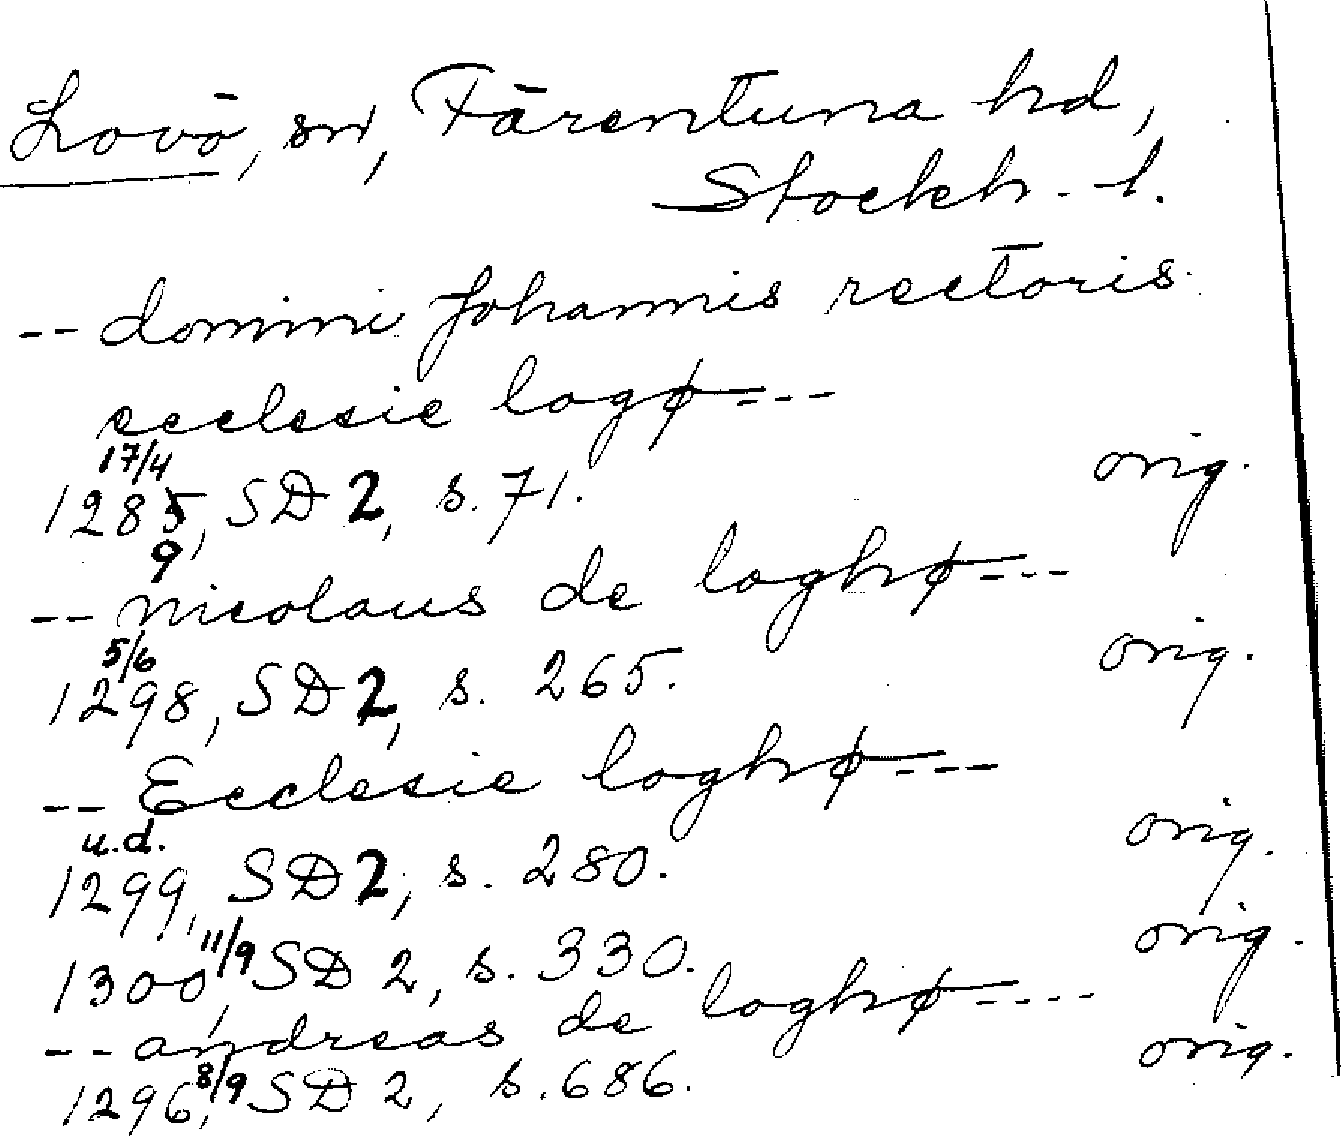 Lovö, sn, Färentuna hd,
Stockh. l.
-- domini Johannis rectoris
ecclesie logø ---
17/4
1285, SD 2, s. 71. orig.
9
-- nicolaus de loghø ---
5/6
1298, SD 2, s. 265. orig.
-- Ecclesie loghø ---
u.d.
1299, SD 2, s. 280. orig.
1300, 11/9 SD 2, s. 330. orig.
-- andreas de loghø ----
1296, 8/9 SD 2, s. 686. orig.